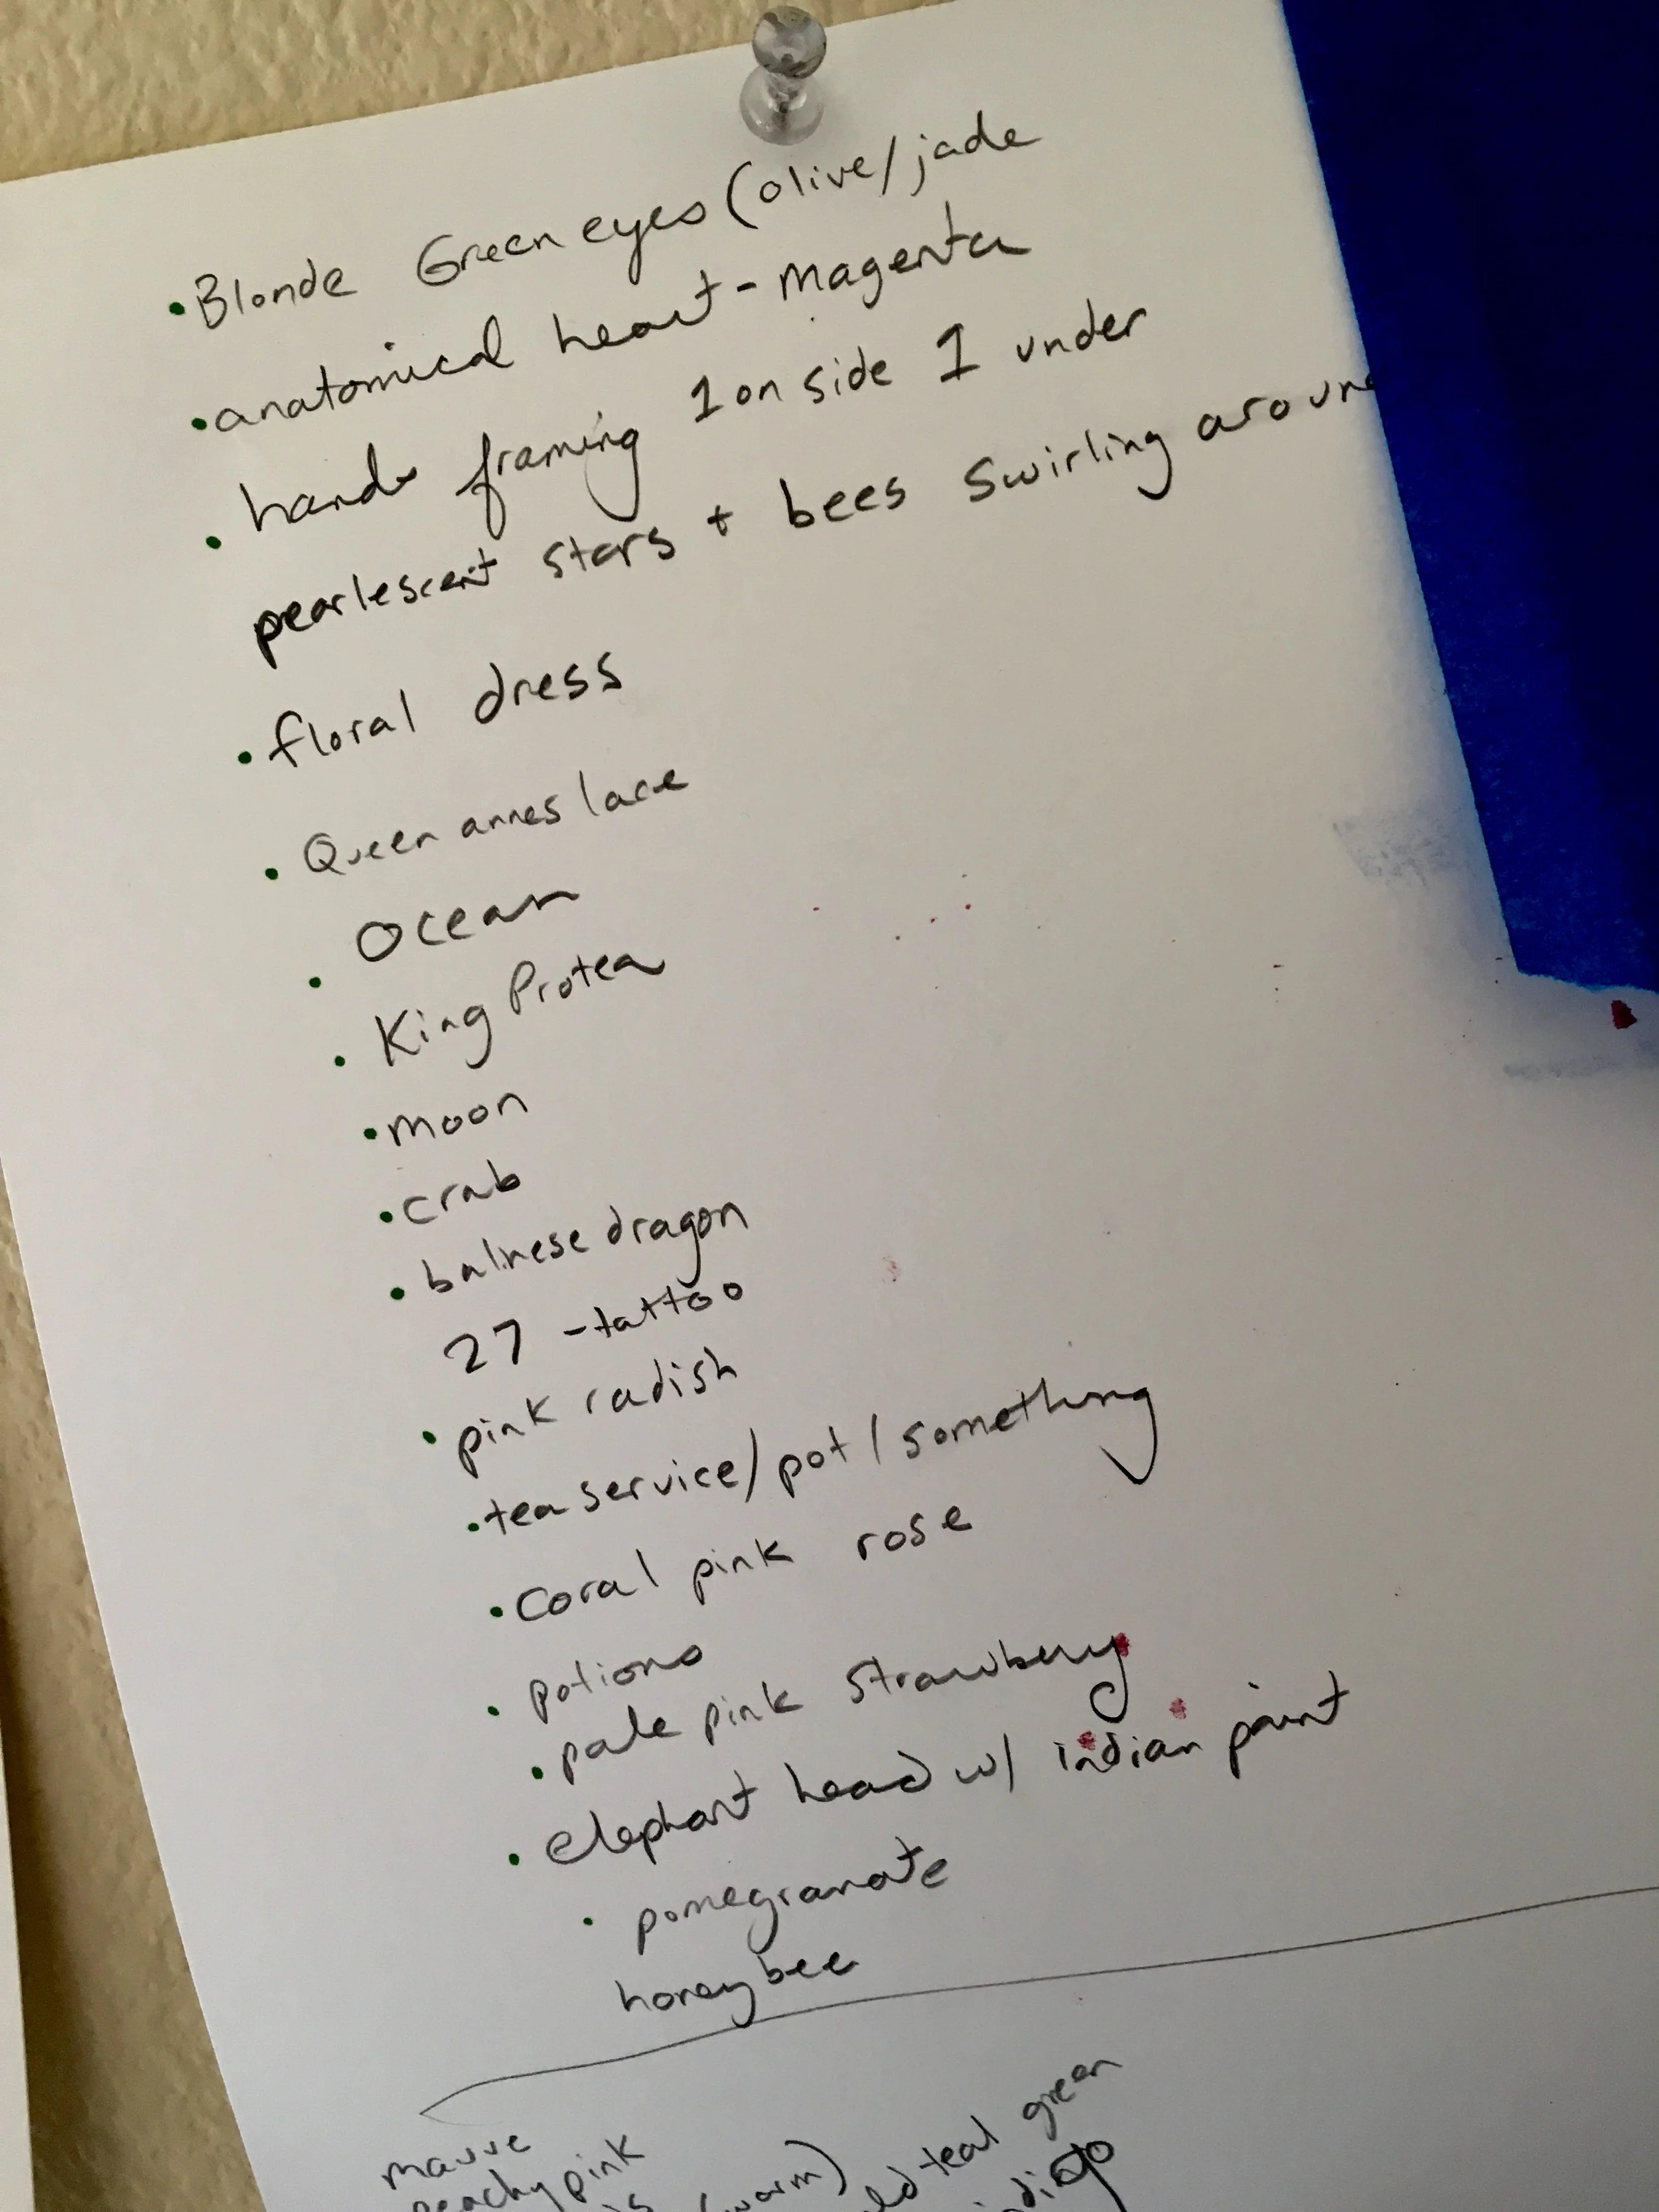 • Blonde Green eyes (olive/jade
• anatomical heart - magenta
• hands framing 1 on side 1 under
pearlescent stars + bees swirling around
• floral dress
• Queen annes lace
• Ocean
• King Protea
• moon
• crab
• balinese dragon
27 - tattoo
• pink radish
• tea service/pot/something
• Coral pink rose
• potions
• pale pink strawberry
• elephant head w/ indian paint
• pomegranate
honeybee
mauve
peachy pink
(warm)
teal green
indigo